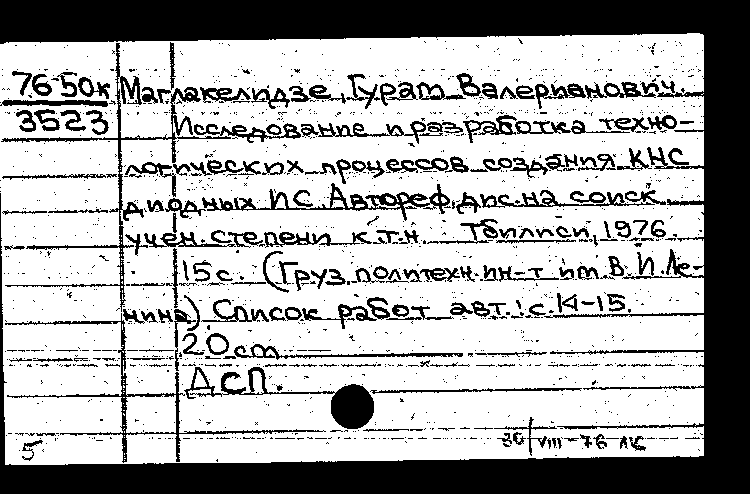 76-50к Маглакелидзе, Гурам Валерианович.
3523 Исследование и разработка техно-
логических процессов создания КНС
диодных ИС. Автореф. дис. на соиск.
учен. степени к.т.н. Тбилиси, 1976.
15с. (Груз. политехн. ин-т им. В.И. Ле-
нина) Список работ авт.: с.14-15.
20 cm
ДСП.
5 30/VIII-76 ЛК